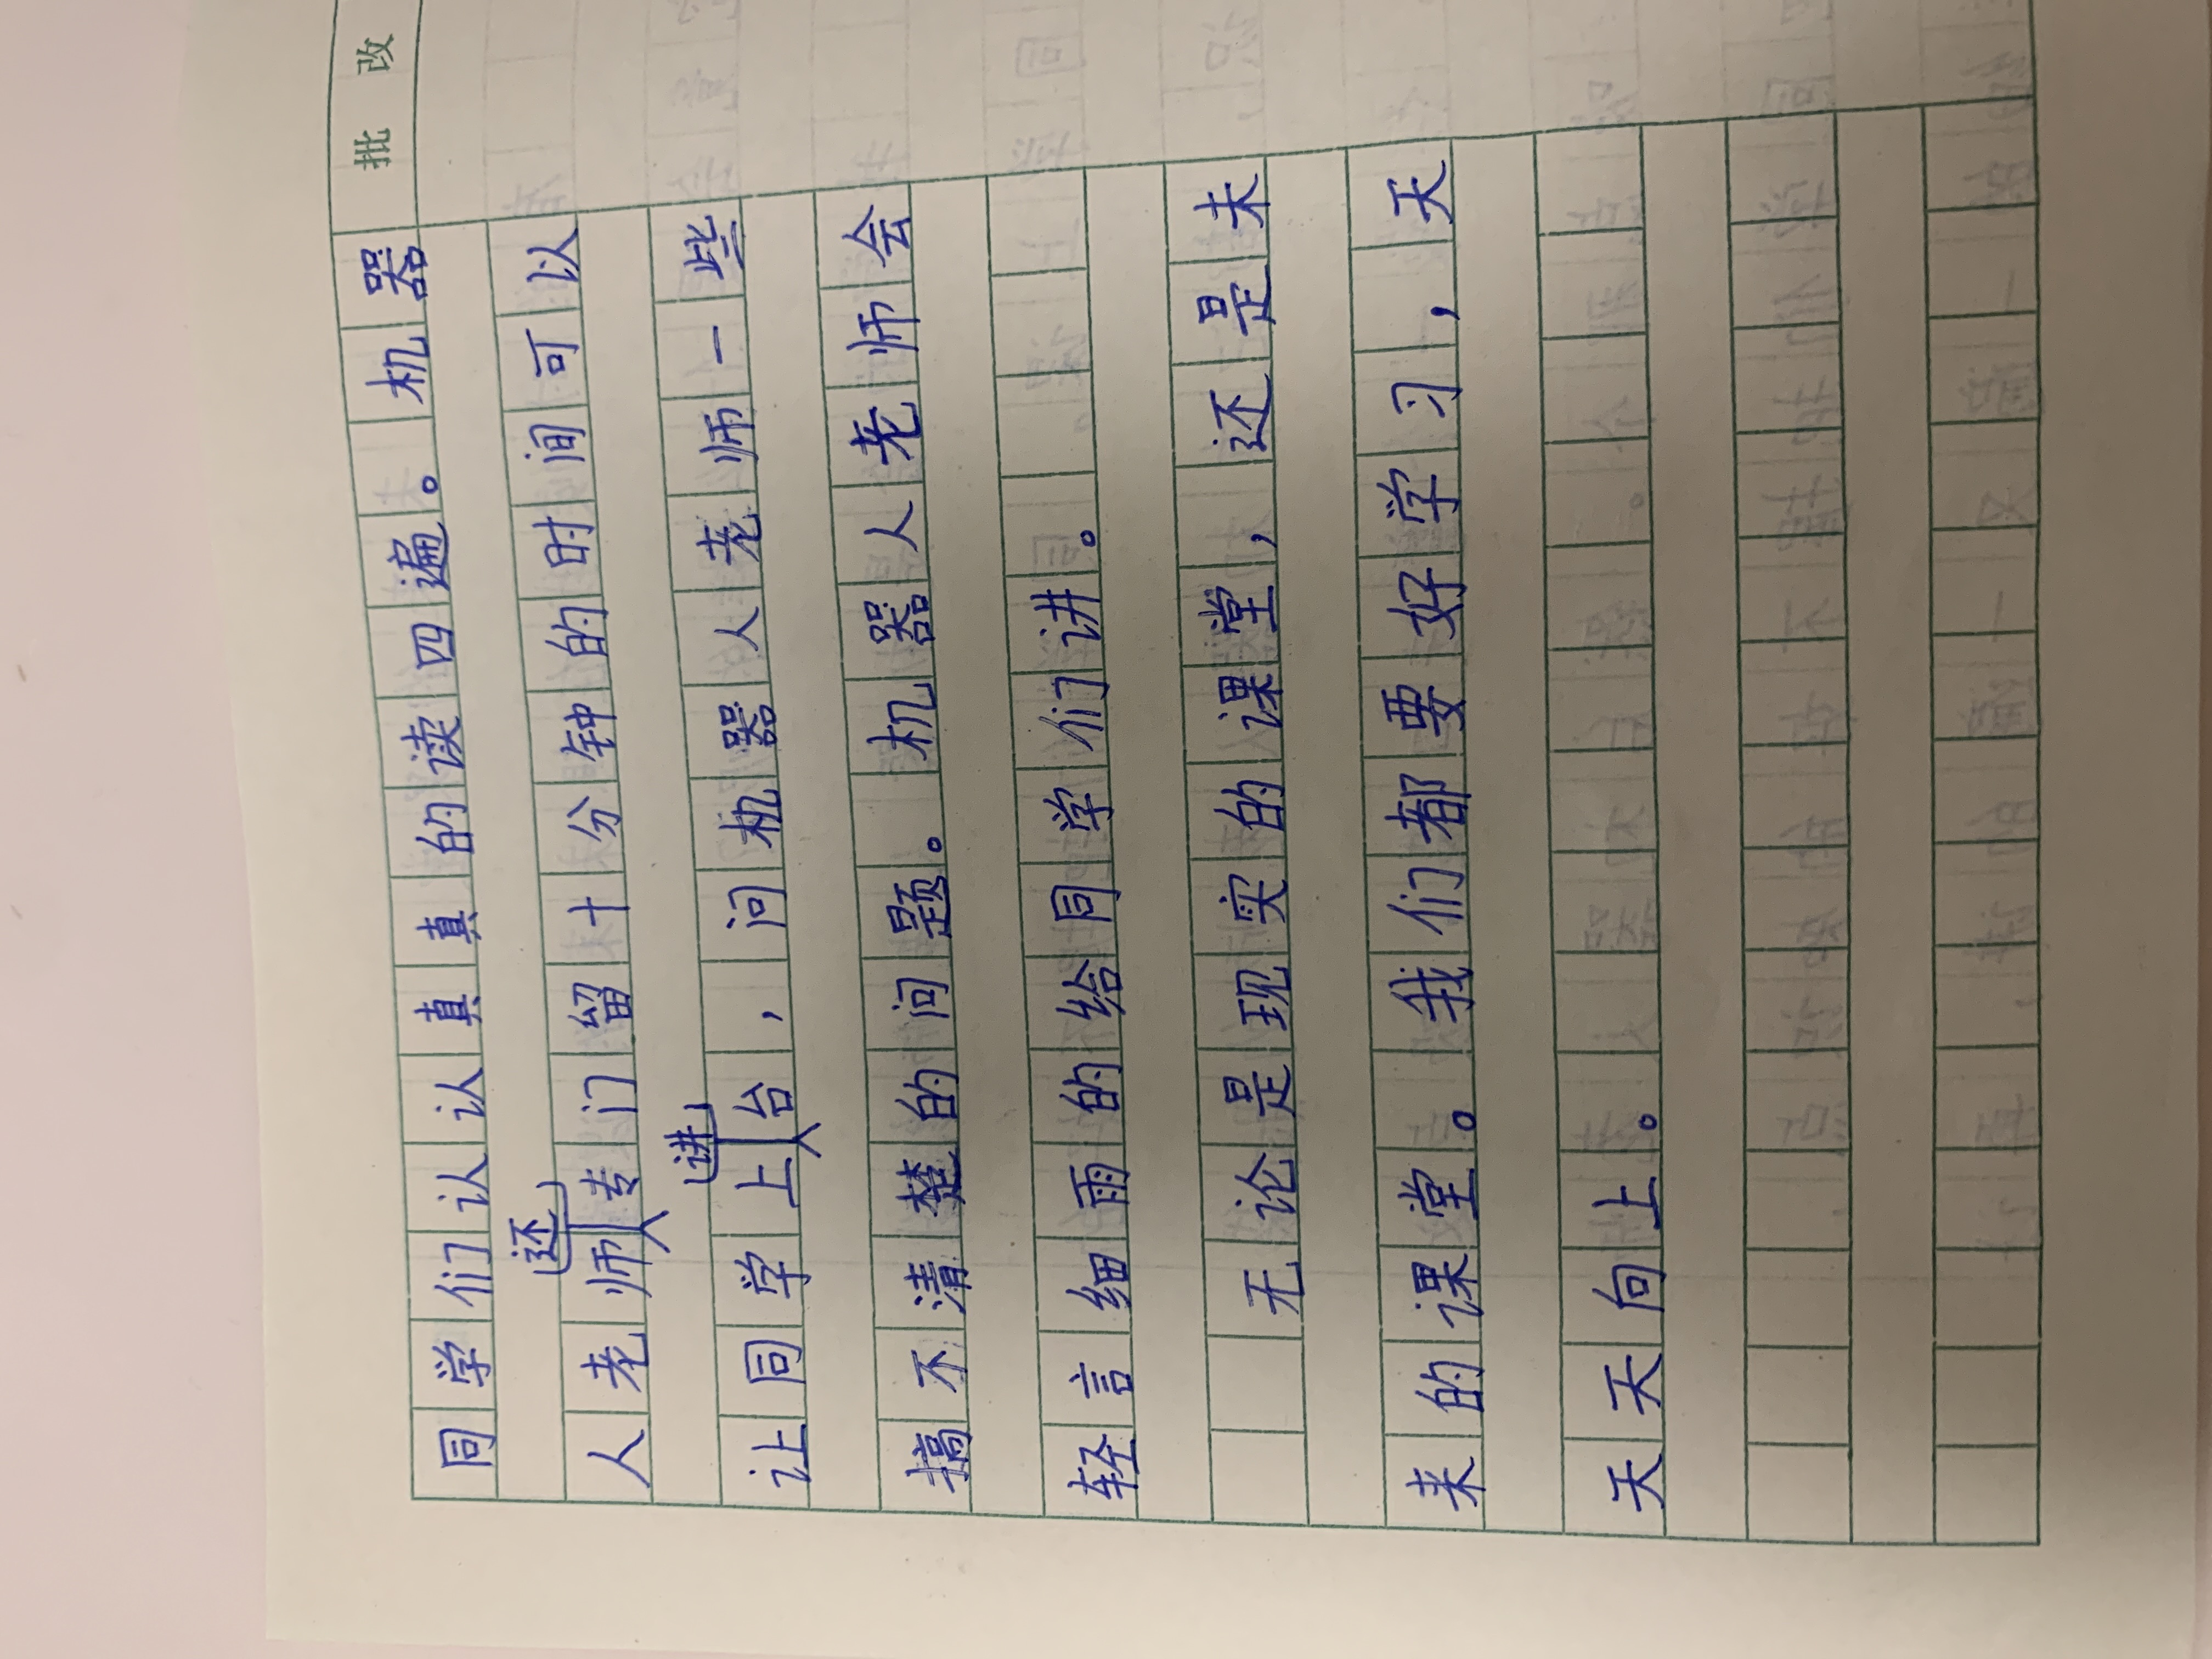 批 改
同学们认认真真的读四遍。机器
人老师还专门留十分钟的时间可以
让同学上讲台，问机器人老师一些
搞不清楚的问题。机器人老师会
轻言细雨的给同学们讲。
无论是现实的课堂，还是未
来的课堂。我们都要好学习，天
天天向上。